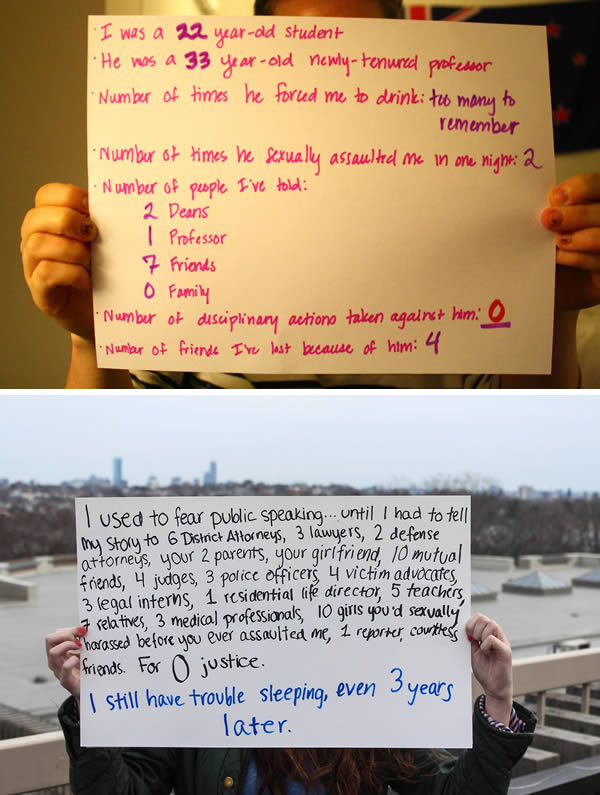 · I was a 22 year-old student
· He was a 33 year-old newly-tenured professor
· Number of times he forced me to drink: too many to
remember
· Number of times he sexually assaulted me in one night: 2
· Number of people I've told:
2 Deans
1 Professor
7 Friends
0 Family
· Number of disciplinary actions taken against him: 0
· Number of friends I've lost because of him: 4
I used to fear public speaking... until I had to tell
my story to 6 District Attorneys, 3 lawyers, 2 defense
attorneys, your 2 parents, your girlfriend, 10 mutual
friends, 4 judges, 3 police officers, 4 victim advocates,
3 legal interns, 1 residential life director, 5 teachers,
7 relatives, 3 medical professionals, 10 girls you'd sexually
harassed before you ever assaulted me, 1 reporter, countless
friends. For 0 justice.
I still have trouble sleeping, even 3 years
later.